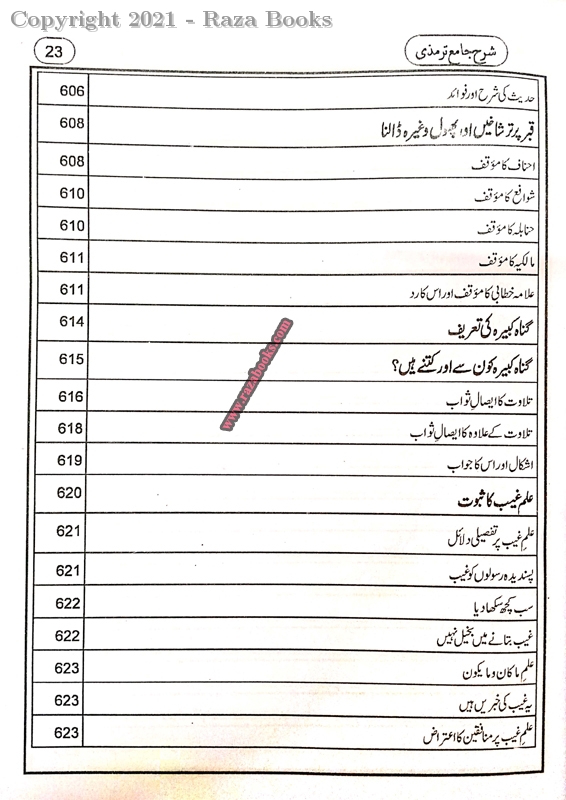 Copyright 2021 - Raza Books
شرح جامع ترمذی 23
حدیث کی شرح اور فوائد 606
قبر پر تر شاخیں اور پھول وغیرہ ڈالنا 608
احناف کا مؤقف 608
شوافع کا مؤقف 610
حنابلہ کا مؤقف 610
مالکیہ کا مؤقف 611
علامہ خطابی کا مؤقف اور اس کا رد 611
گناہ کبیرہ کی تعریف 614
گناہ کبیرہ کون سے اور کتنے ہیں؟ 615
تلاوت کا ایصالِ ثواب 616
تلاوت کے علاوہ کا ایصالِ ثواب 618
اشکال اور اس کا جواب 619
علم غیب کا ثبوت 620
علمِ غیب پر تفصیلی دلائل 621
پسندیدہ رسولوں کو غیب 621
سب کچھ سکھا دیا 622
غیب بتانے میں بخیل نہیں 622
علمِ ما کان وما یکون 623
یہ غیب کی خبریں ہیں 623
علمِ غیب پر منافقین کا اعتراض 623
www.razabooks.com